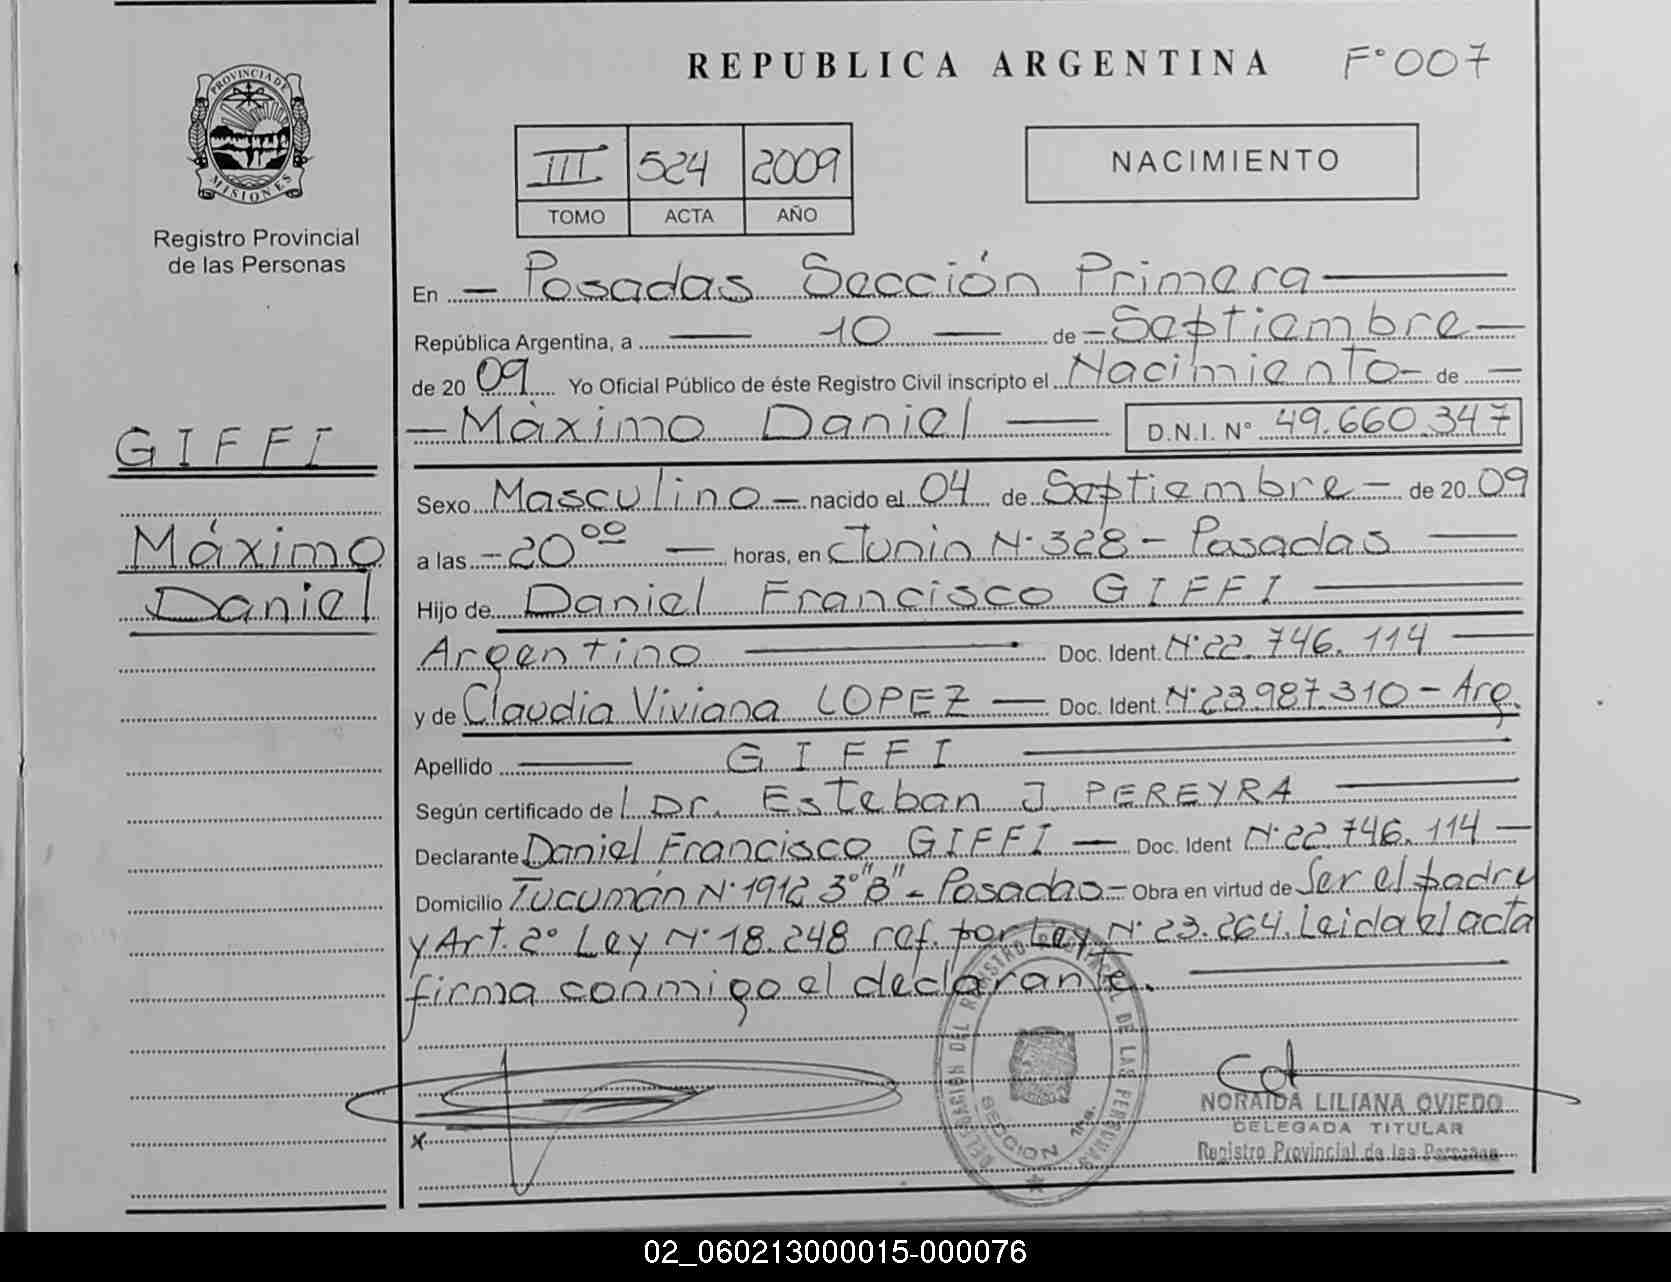 REPUBLICA ARGENTINA F° 007
PROVINCIA DE
MISIONES
Registro Provincial
de las Personas
III 524 2009
TOMO ACTA AÑO
NACIMIENTO
En Posadas Sección Primera
República Argentina, a 10 de Septiembre
de 20 09 Yo Oficial Público de éste Registro Civil inscripto el Nacimiento de
Máximo Daniel D.N.I. N° 49.660.347
GIFFI
Máximo
Daniel
Sexo Masculino nacido el 04 de Septiembre de 20 09
a las 20°° horas, en Junin N° 328 - Posadas
Hijo de Daniel Francisco GIFFI
Argentino Doc. Ident. N° 22.746.114
y de Claudia Viviana LOPEZ Doc. Ident. N° 23.987.310 - Arg.
Apellido GIFFI
Según certificado de l Dr. Esteban J PEREYRA
Declarante Daniel Francisco GIFFI Doc. Ident N° 22.746.114
Domicilio Tucumán N° 1912 3° "B" - Posadas - Obra en virtud de Ser el padre
y Art. 2° Ley N° 18.248 ref. por Ley N° 23.264. Leida el acta
firma conmigo el declarante.
DELEGACION DEL REGISTRO PROVINCIAL DE LAS PERSONAS
SECCION 1ra.
x
NORAIDA LILIANA OVIEDO
DELEGADA TITULAR
Registro Provincial de las Personas
02_060213000015-000076